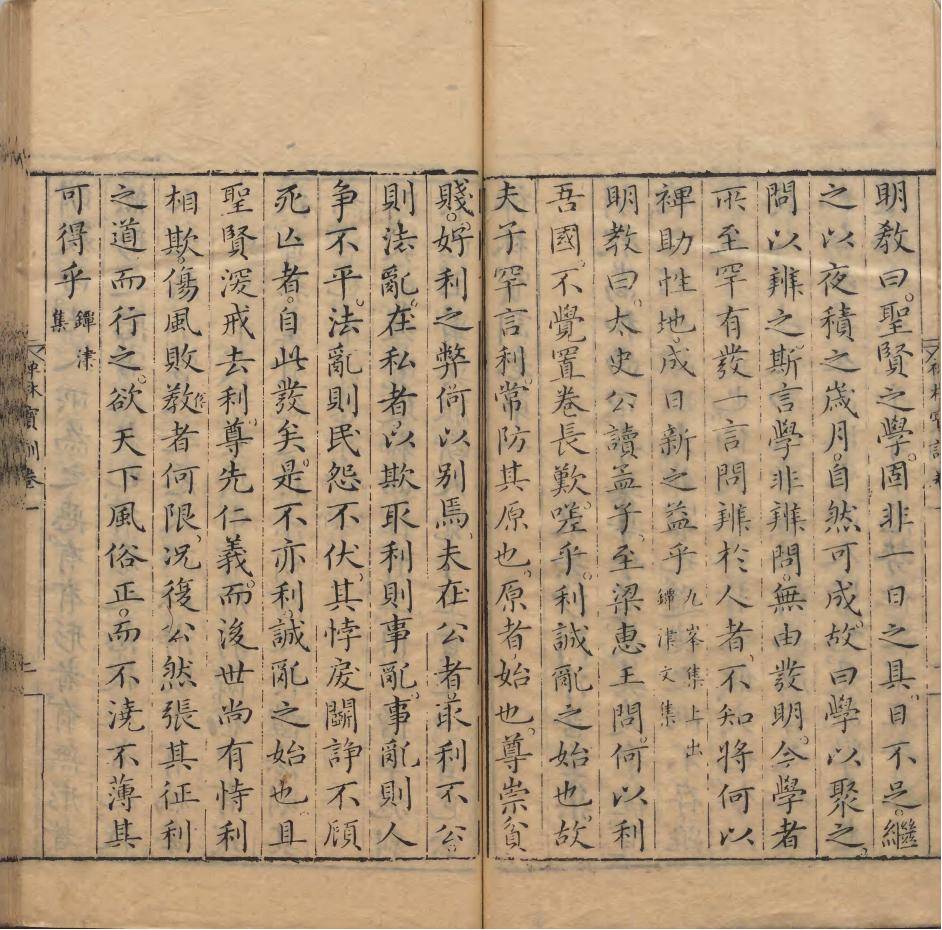 明教曰聖賢之學固非一日之具日不足繼
之以夜積之歲月自然可成故曰學以聚之
問以辨之斯言學非辨問無由發明今學者
所至罕有發一言問辨於人者不知將何以
裨助性地成日新之益乎九峯集上出鐔津文集
明教曰太史公讀孟子至梁惠王問何以利
吾國不覺置卷長歎嗟乎利誠亂之始也故
夫子罕言利常防其原也原者始也尊崇貧
賤好利之弊何以別焉夫在公者取利不公
則法亂在私者以欺取利則事亂事亂則人
争不平法亂則民怨不伏其悖戾鬬諍不顧
死亾者自此發矣是不亦利誠亂之始也且
聖賢深戒去利尊先仁義而後世尚有恃利
相欺傷風敗教者何限况復公然張其征利
之道而行之欲天下風俗正而不澆不薄其
可得乎鐔津集